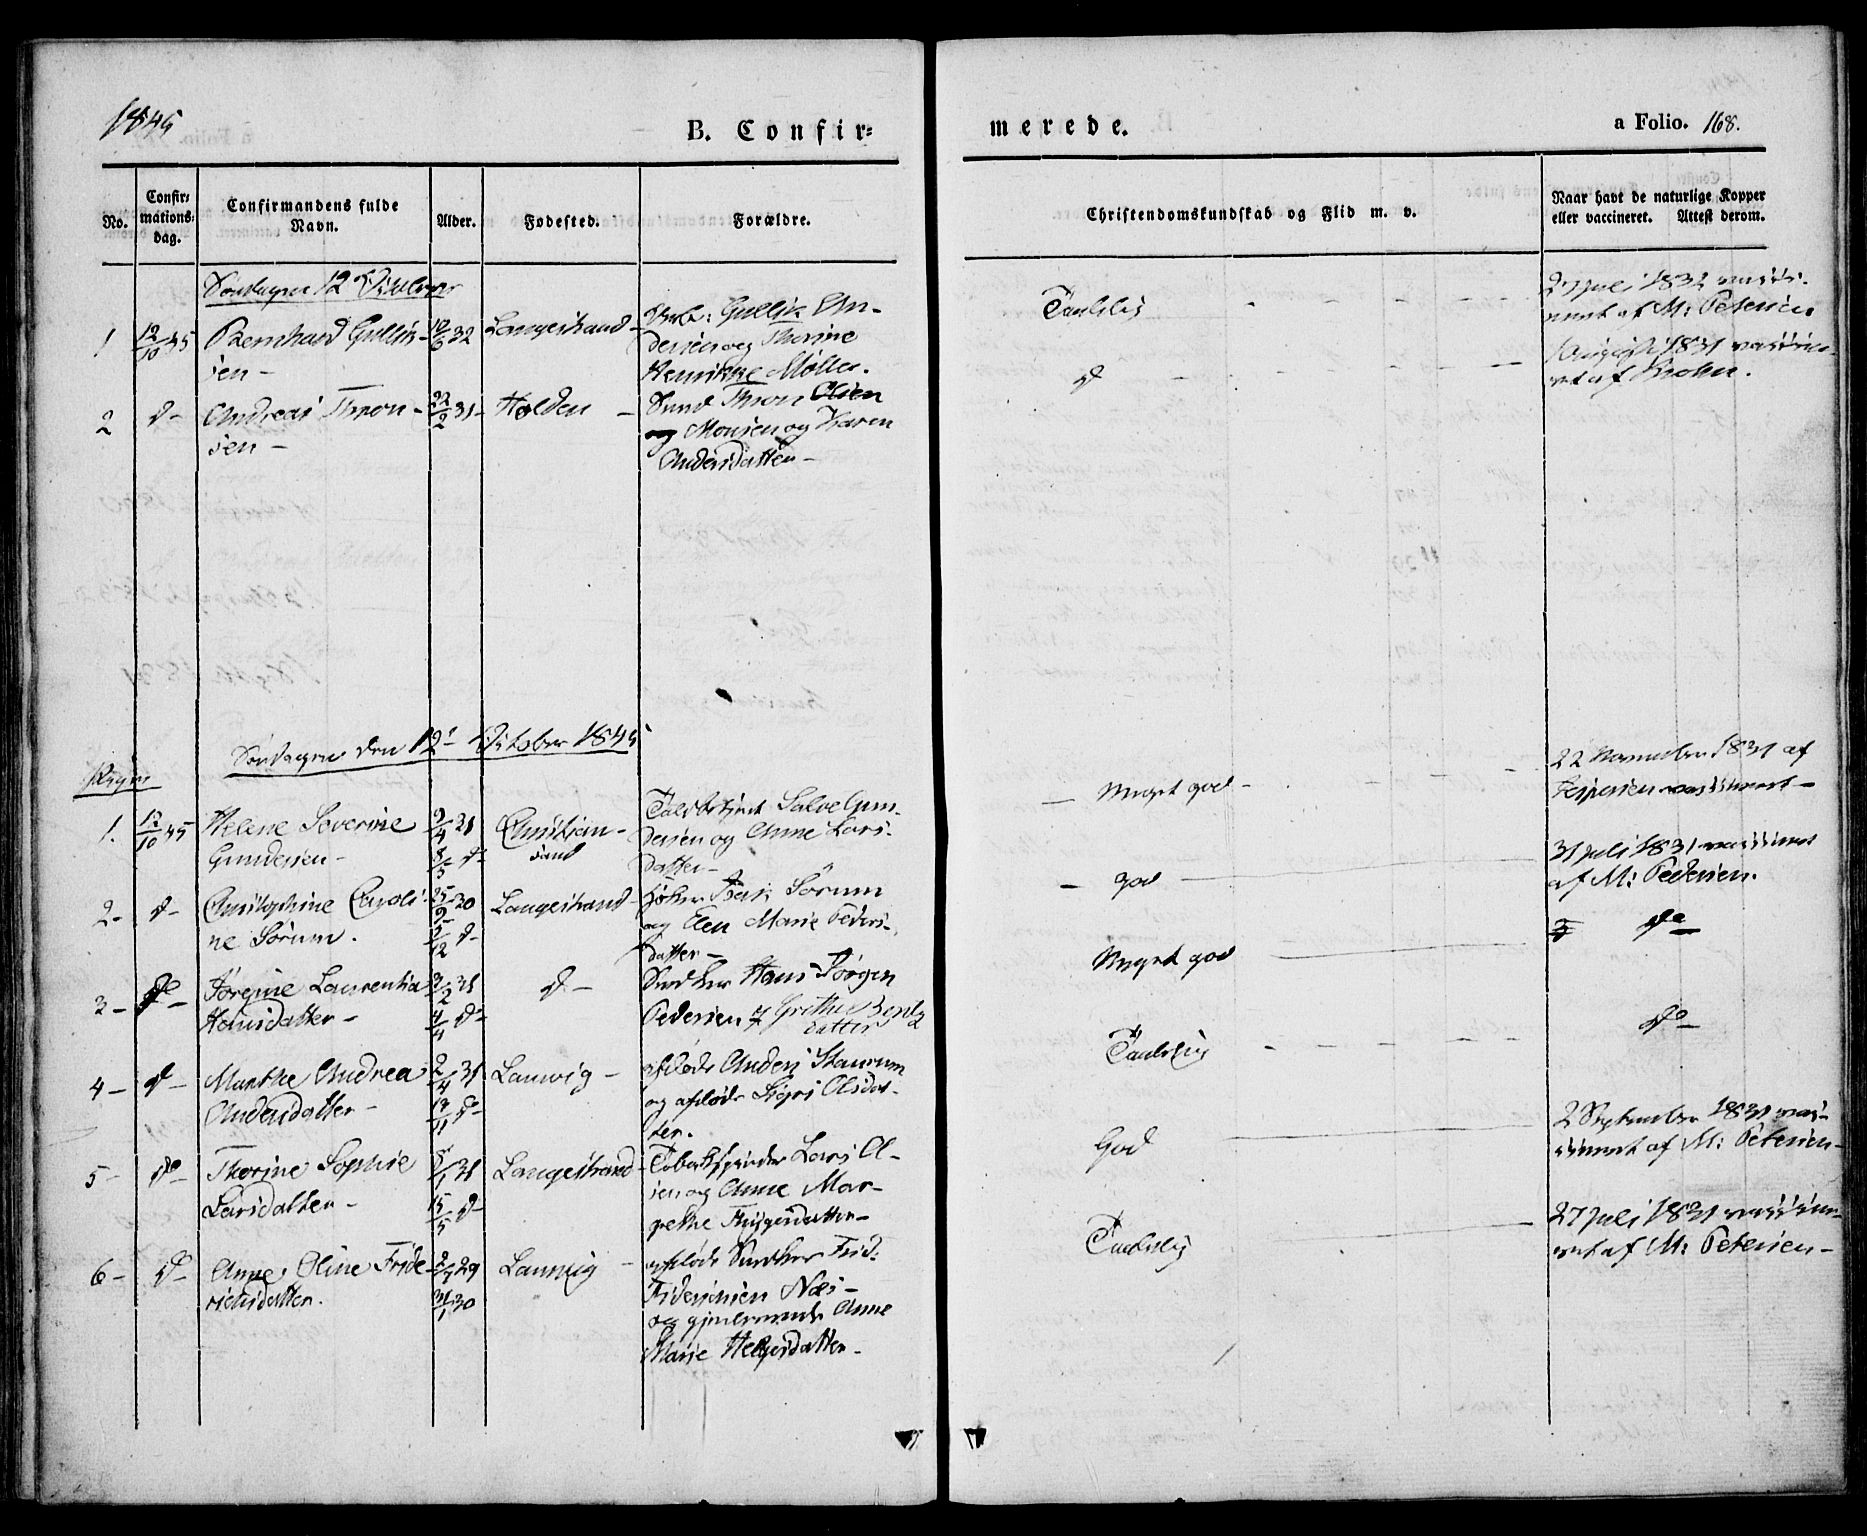 1845
B. Confir=
merede.
a Folio. 168.
No.
Confir=
mations=
dag.
Confirmandens fulde
Navn.
Alder.
Fødested.
Forældre.
Christendomskundskab og Flid m. v.
Naar havt de naturlige Kopper
eller vaccineret. Attest derom.
Søndagen 12 October
1 12/10 45 Bernhard Gullik- 10/6 32 Langesund
sen -
Gullik An-
dersen og Thorine
Henrikke Møller.
Taalelig
27 Juli 1832 vacci-
neret af M: Petersen
2 do- Andreas Thron- 22/2 31- Holden -
sen -
Thron Olsen
og Monsen og Karen
Andersdatter -
do
August 1831 vaccine-
ret af Krohn.
Søndagen den 12 October 1845
Piger
1. 12/10 45 Helene Severine 9/4 31 Christian-
Gundersen - 8/5 do sand
Toldbetjent Salve Gun-
dersen og Anne Lars-
datter -
Meget god -
22 November 1831 af
Jespersen vaccineret -
2- do- Christophine Caroli- 25/9 30 Langesund -
ne Sørum. 5/12 do-
Isak Sörum
og Elen Marie Peders-
datter -
god
31 Juli 1831 vaccineret
af M: Pedersen.
3- do- Jørgine Laurentia 3/2 31 do-
Hansdatter - 4/4 do-
Hans Jørgen
Pedersen og Grethe Bents
datter
Meget god
do
4- do- Marthe Andrea 2/4 31 Laurvig -
Andersdatter - 17/11 do-
afdøde Anders Staurum
og afdøde Sigri Olsdat-
ter.
Taalelig
do
5- do- Thorine Sophie 5/1 31 Langesund
Larsdatter - 15/5 do-
Tobakspinder Lars Ol-
sen og Anne Mar-
grethe Thygesdatter -
God
2 September 1831 vac-
cineret af M: Petersen -
6- do- Anne Oline Fride- 2/7 29 Laurvig -
richsdatter. 31/1 30
afdøde Fid:
Fiderichsen Næs -
og gjenlevende Anne
Marie Helgesdatter -
Taalelig
27 Juli 1831 vaccine-
ret af M: Petersen -